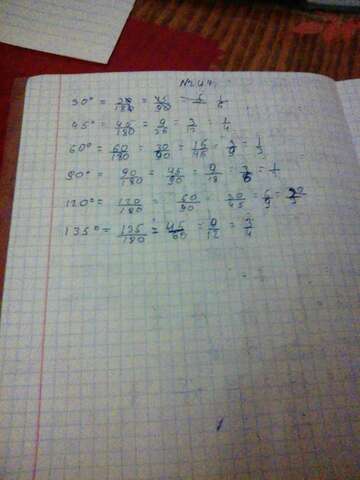 30° = 30/180 = 45/90 = 5/ 1/6
45° = 45/180 = 9/36 = 3/12 = 1/4
60° = 60/180 = 30/90 = 15/45 = 3/9 = 1/3
90° = 90/180 = 45/90 = 9/18 = 3/6 = 1/
120° = 120/180 = 60/90 = 30/45 = 6/9 =
135° = 135/180 = 45/60 = 9/12 = 3/4